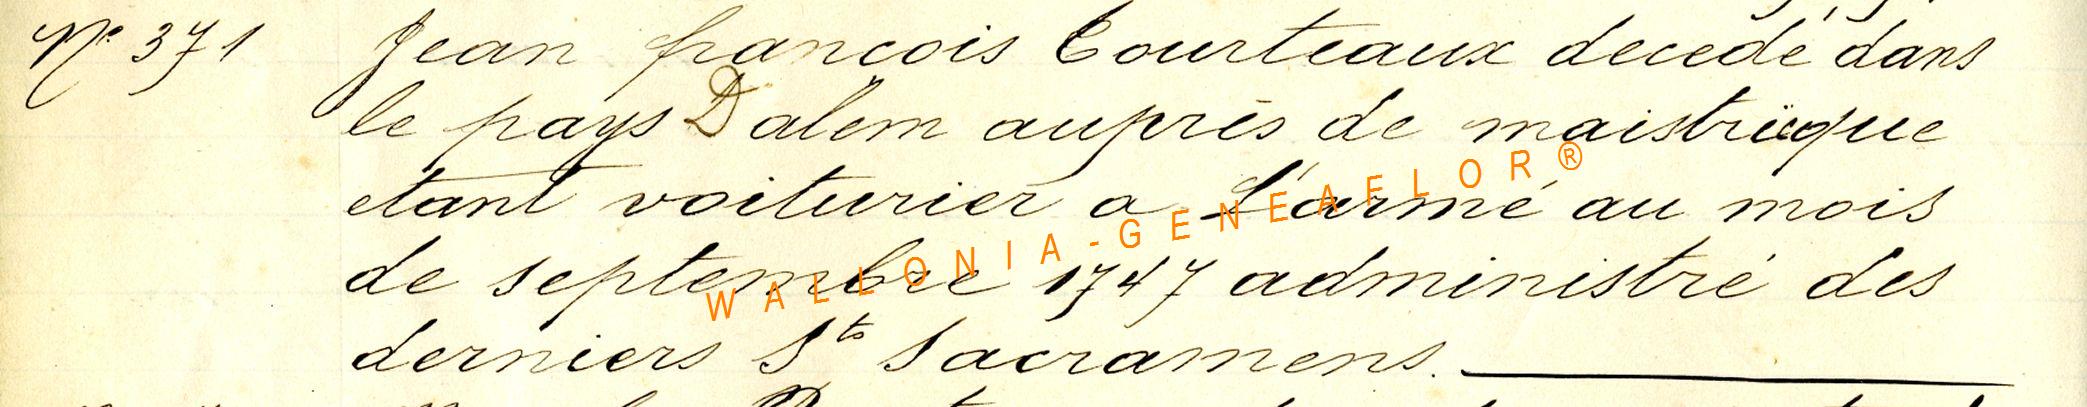 N° 371 Jean francois Courteaux decedé dans
le pays Dalem auprès de maistricque
etant voiturier a L'armé au mois
de septembre 1747 administré des
derniers Sts Sacramens.
WALLONIA-GENEAFLOR®